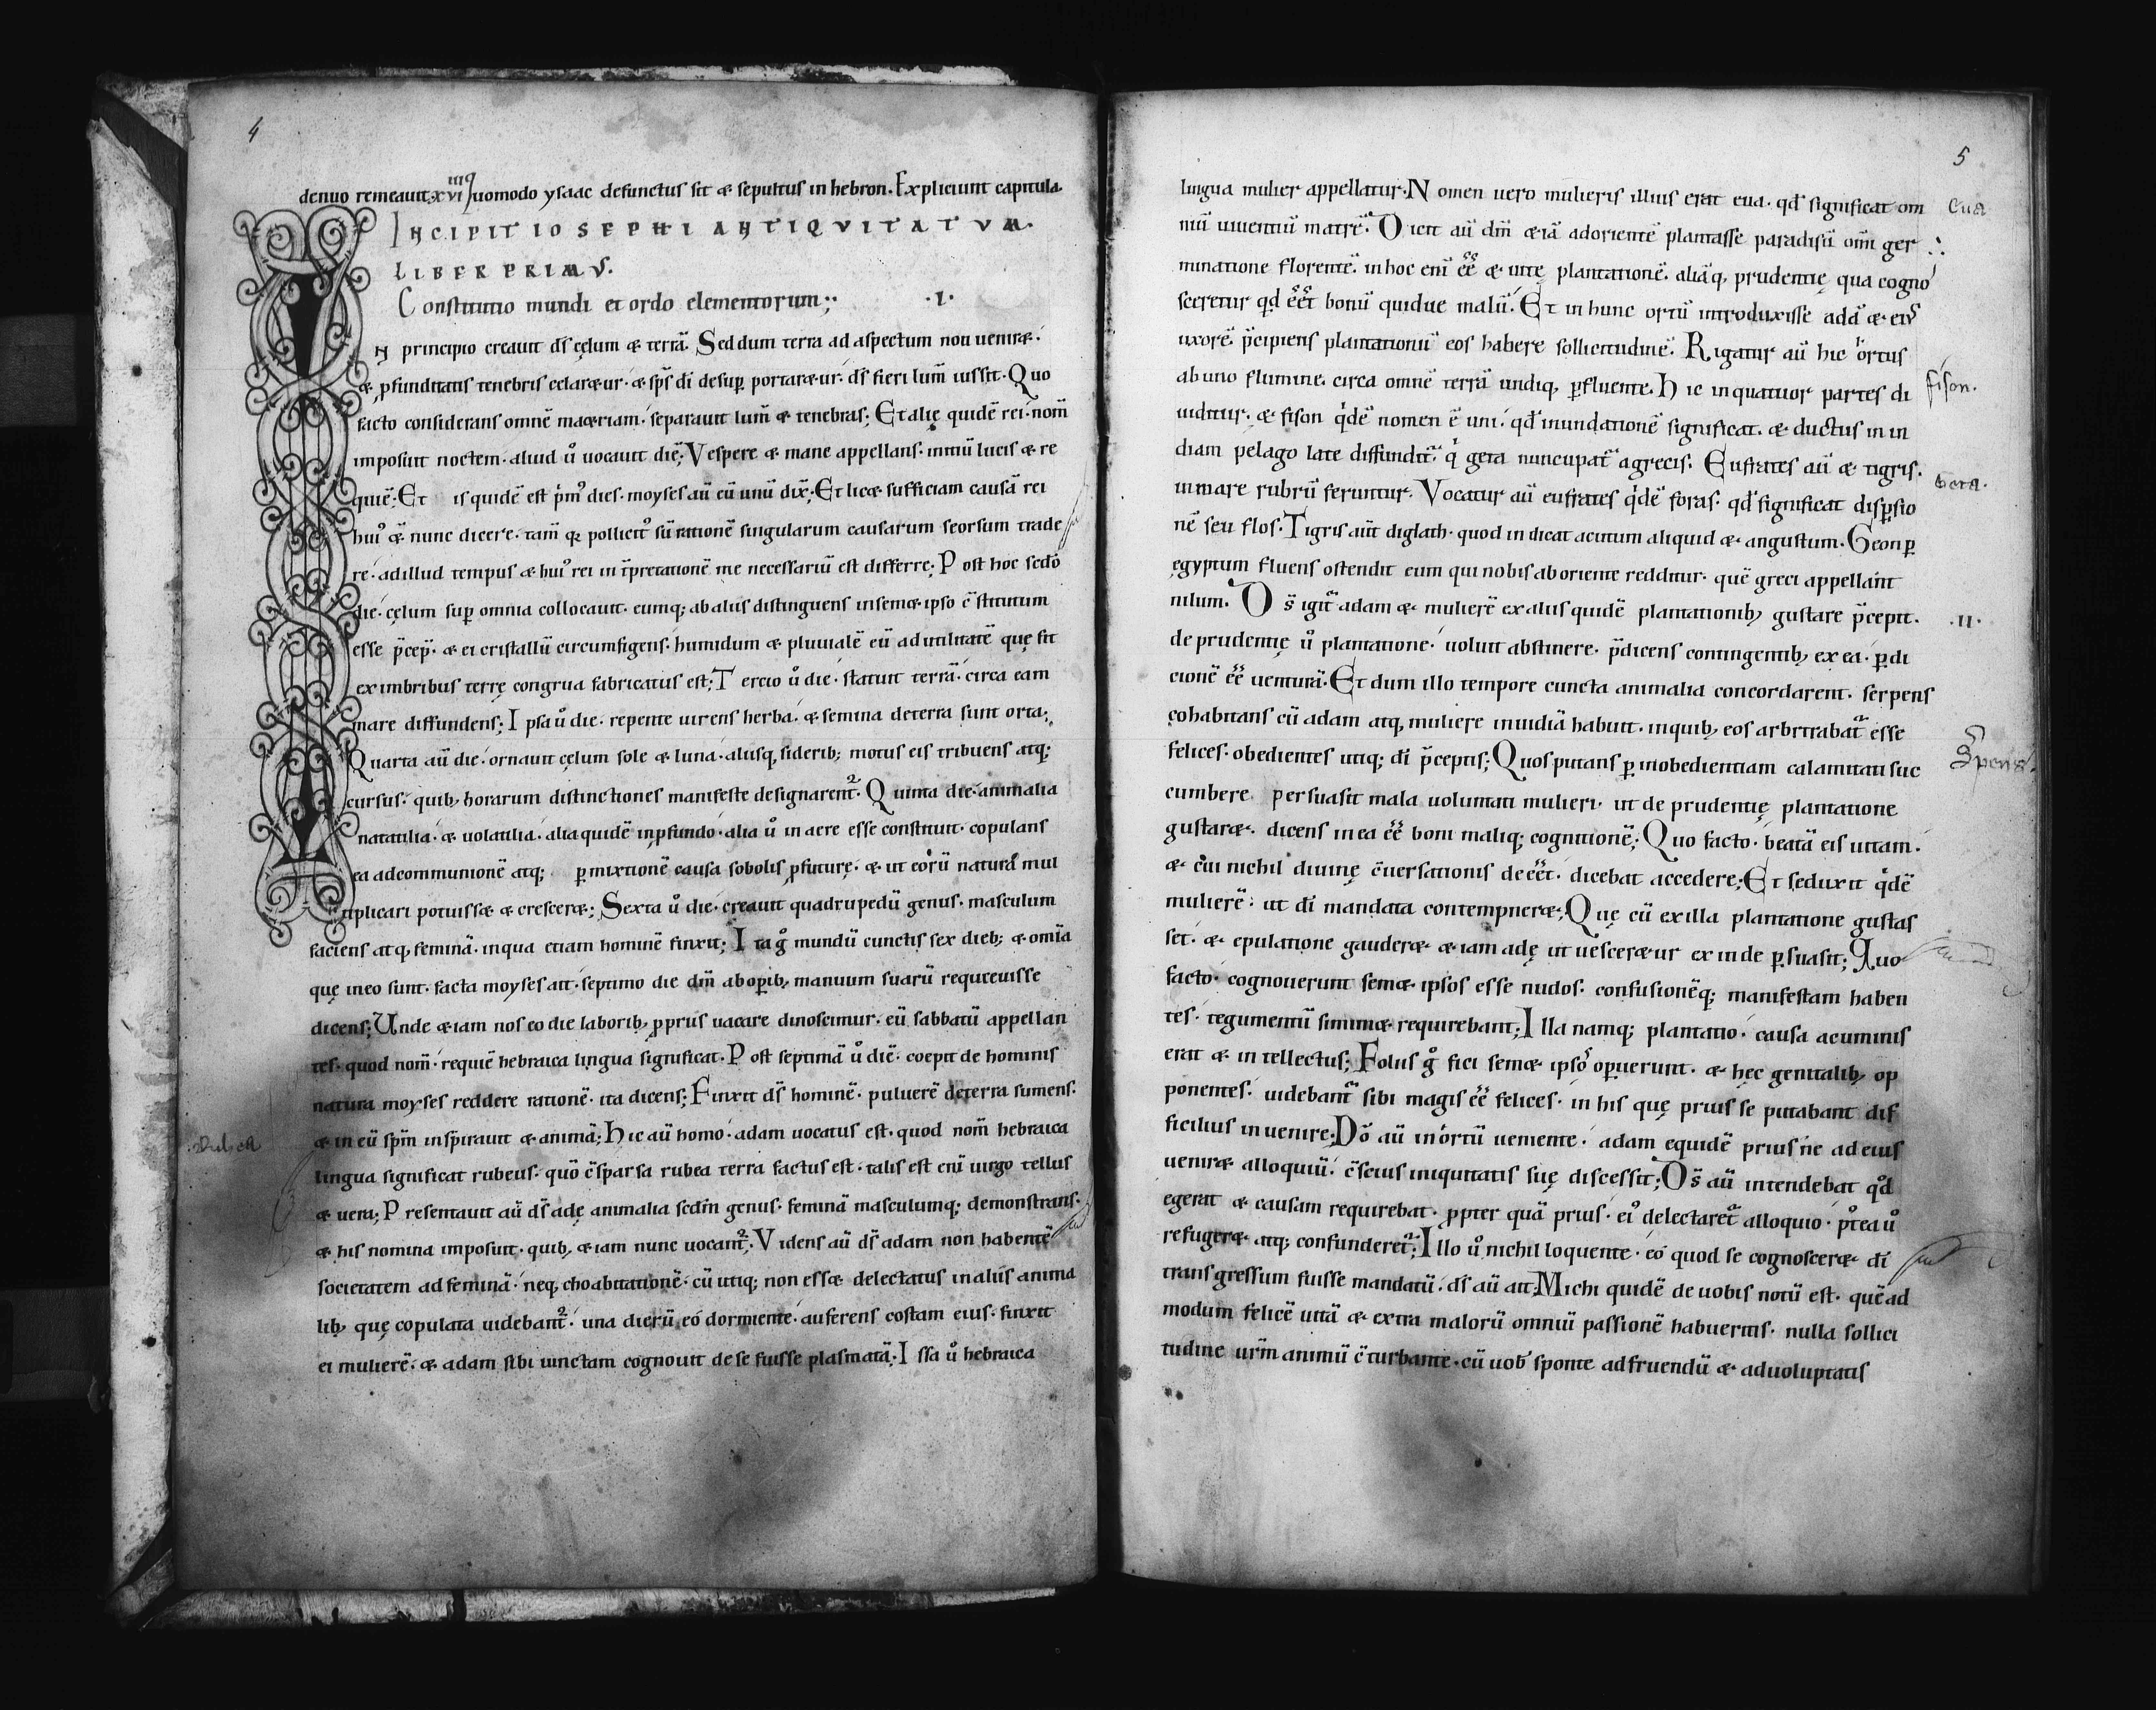 4
denuo remeauit. xviiii Quomodo ysaac defunctus sit æ sepultus in hebron. Expliciunt capitula.
INCIPIT IOSEPHI ANTIQVITATVM.
LIBER PRIMVS.
Constitutio mundi et ordo elementorum; .I.
IN principio creauit d̅s cęlum æ terrā. Sed dum terra ad aspectum non ueniræ.
æ ꝓfunditatis tenebris celaræur. æ sp̅s d̅i desuꝑ portaræur. d̅s fieri lum̅ iussit. Quo
facto considerans omnē maæriam. separauit lum̅ æ tenebras; Et alię quidē rei nom̅
imposuit noctem. aliud ů uocauit diē; Vespere æ mane appellans. initiū lucis æ re
quiē. Et is quidē est p̍mꝰ dies. moyses aū eū unū dix̅; Et licæ sufficiam causā rei
huiꝰ æ̅ nunc dicere. tam̅ qꝛ pollicitꝰ sū rationē singularum causarum seorsum trade
re. ad illud tempus æ huiꝰ rei int̅pretationē me necessariū est differre; Post hoc scd̅o
die. cęlum suꝑ omnia collocauit. eumq; ab aliis distinguens insemæ ipso c̅stitutum
esse p̅cep̅. æ ei cristallū circumfigens. humidum æ pluuialē eū ad utilitatē quę fit
ex imbribus terrę congrua fabricatus est; Tercio ů die. statuit terrā. circa eam
mare diffundens; Ipsa ů die. repente uirens herba. æ semina de terra sunt orta;
Quarta aū die. ornauit cęlum sole æ luna. aliisq, siderib; motus eis tribuens atq;
cursus. quib, horarum distinctiones manifeste designarent᷑. Quinta die. animalia
natatilia. æ uolatilia. alia quidē in ꝓfundo. alia ů in aere esse constituit. copulans
ea ad communionē atq; ꝑmixtionē causa sobolis ꝓfuturę. æ ut eorū natura mul
tiplicari potuissæ æ cresceræ; Sexta ů die. creauit quadrupedū genus. masculum
faciens atq, feminā. in qua etiam hominē finxit; Ita g̊ mundū cunctis sex dieb; æ omīa
quę in eo sunt. facta moyses ait. septimo die dm̅ ab oꝑib, manuum suarū requieuisse
dicens; Unde æiam nos eo die laborib, ꝓprus uacare dinoscimur. eū sabbatū appellan
tes. quod nom̅. requiē hebraica lingua significat. Post septimā ů diē. coepit de hominis
natura moyses reddere rationē. ita dicens; Finxit d̅s hominē. puluerē de terra sumens.
æ in eū sp̅m inspirauit æ animā; Hic aū homo. adam uocatus est. quod nom̅ hebraica
lingua significat rubeus. quō c̅sparsa rubea terra factus est. talis est enī uirgo tellus
æ uera; Presentauit aū d̅s adę animalia scdm̅ genus. feminā masculumq; demonstrans.
æ his nomina imposuit. quib, æiam nunc uocant᷑; Videns aū d̅s adam non habentē
societatem ad feminā. neq, choabitationē. cū utiq; non essæ delectatus in aliis anima
lib, quę copulata uidebant᷑. una dierū eo dormiente. auferens costam eius. finxit
ei mulierē. æ adam sibi iunctam cognouit de se fuisse plasmatā; Issa ů hebraica
5
lingua mulier appellatur. Nomen uero mulieris illius erat eua. qd̅ significat om
Eua
niū uiuentiū matrē. Dicit aū dm̅ æiā ad orientē plantasse paradisū om̅i ger
minatione florentē. in hoc enī e̅e̅ æ uitę plantationē. aliāq, prudentię qua cogno
sceretur qd̅ e̅e̅t bonū quidue malū. Et in hunc ortū introduxisse adā æ eiꝰ
uxorē. p̅cipiens plantationū eos habere sollicitudinē. Rigatur aū hic hortus
ab uno flumine. circa omnē terrā undiq, ꝑfluente. Hic in quatuor partes di
fison.
uiditur. æ fison q̍dē nomen ē uni. qd̅ inundationē significat. æ ductus in in
diam pelago late diffundit᷑. q̍ geta nuncupat᷑ a grecis. Eufrates aū æ tigris.
Geta.
in mare rubrū feruntur. Vocatur aū eufrates q̍dē foras. qd̅ significat disꝑsio
nē seu flos. Tigris aūt diglath. quod indicat acutum aliquid æ angustum. Geon ꝑ
ęgyptum fluens ostendit eum qui nobis ab oriente redditur. quē greci appellant
nilum. Ds̅ igit᷑ adam æ mulierē ex aliis quidē plantationib, gustare p̅cepit.
.II.
de prudentię ů plantatione. uoluit abstinere. p̅dicens contingentib, ex ea. ꝑdi
cionē e̅e̅ uenturā. Et dum illo tempore cuncta animalia concordarent. serpens
cohabitans cū adam atq, muliere inuidiā habuit. in quib, eos arbitrabat᷑ esse
felices. obedientes utiq; d̅i p̅ceptis; Quos putans ꝑ inobedientiam calamitati suc
Serpens.
cumbere persuasit mala uoluntati mulieri. ut de prudentię plantatione
gustaræ. dicens in ea e̅e̅ boni maliq; cognitionē; Quo facto. beatā eis uitam.
æ cui nichil diuinę c̅uersationis dee̅e̅t. dicebat accedere; Et seduxit q̍dē
mulierē. ut d̅i mandata contempneræ; Quę cū ex illa plantatione gustas
set. æ epulatione gauderæ æiam adę ut uesceræur ex inde ꝑsuasit; Quo
facto. cognouerunt semæ ipsos esse nudos. confusionēq; manifestam haben
tes. tegumentū sinimæ requirebant; Illa namq; plantatio. causa acuminis
erat æ intellectus; Foliis g̊ fici semæ ipsoꝰ oꝑuerunt. æ hęc genitalib, op
ponentes. uidebant᷑ sibi magis e̅e̅ felices. in his quę prius se putabant dif
ficilius inuenire; Dō aū in ortū ueniente. adam equidē prius ne ad eius
ueniræ alloquiū. c̅scius iniquitatis suę discessit; Ds̅ aū intendebat qd̊
egerat æ causam requirebat. ꝓpter quā prius. eiꝰ delectaret᷑ alloquio. pꝰtea ů
refugeræ atq; confunderet᷑; Illo ů nichil loquente. eo quod se cognosceræ d̅i
transgressum fuisse mandatū. d̅s aū ait. Michi quidē de uobis notū est. quē ad
modum felicē uitā æ extra malorū omniū passionē habueritis. nulla sollici
tudine ur̅m animū c̅turbante. cū uob̅ sponte ad fruendū æ ad uoluptatis